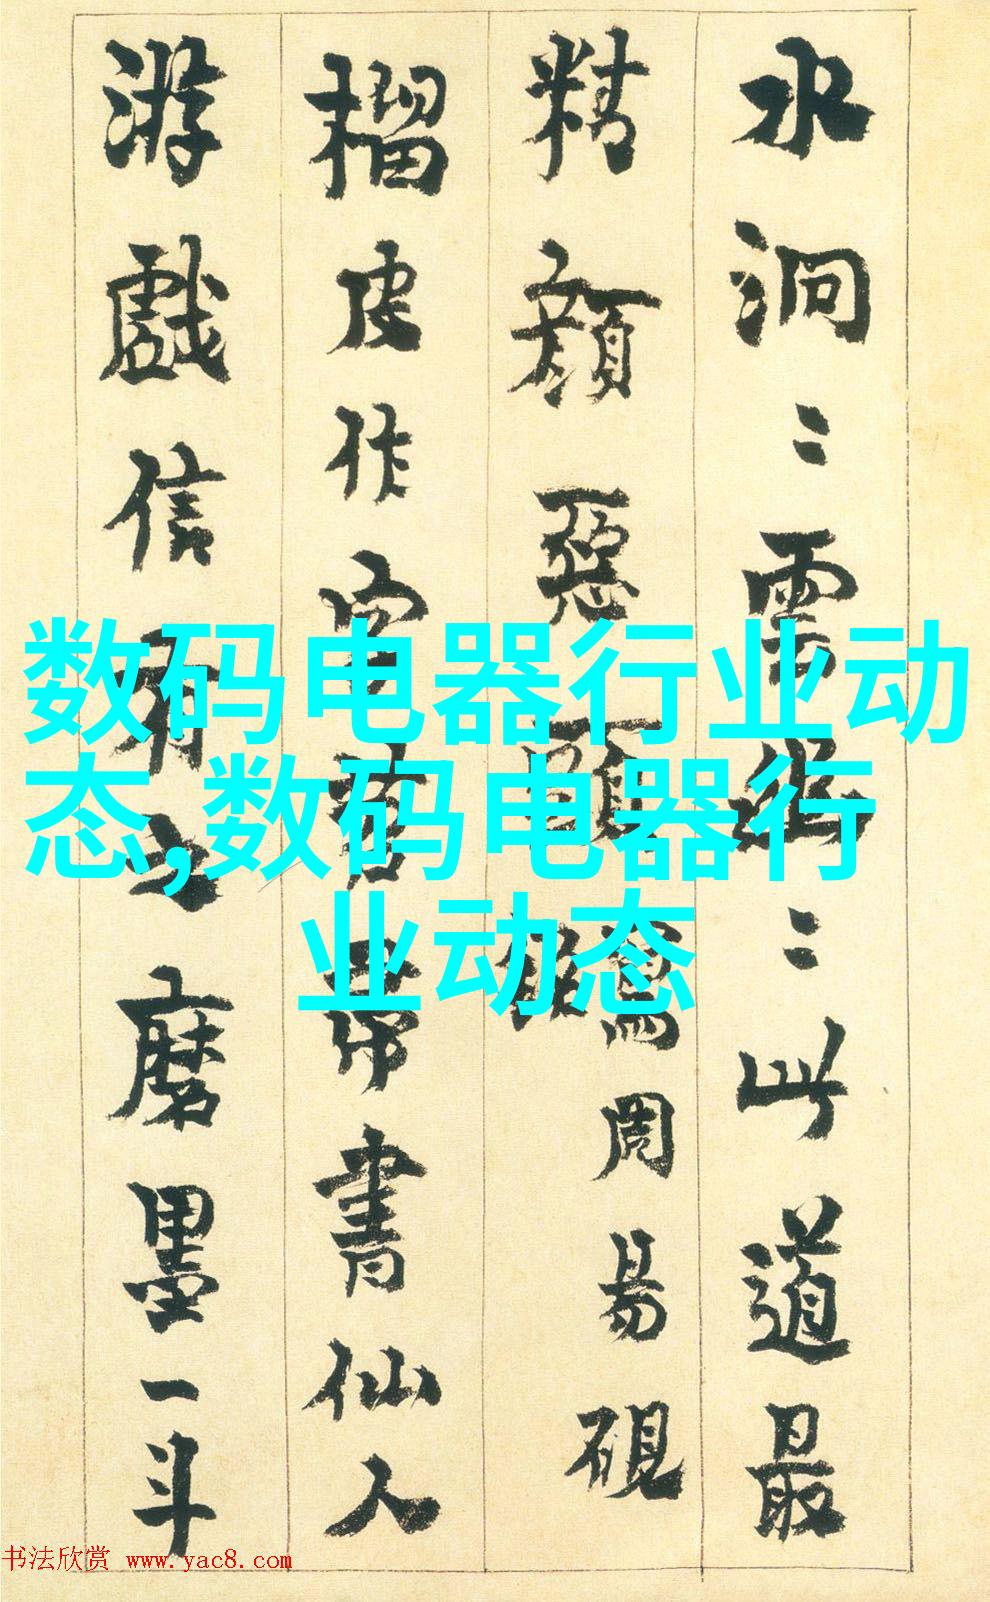 水洞〻雲水〻此道最
精顏惡頭為周易硯
榴皮作字君弟書仙人
游戲信有之磨墨一斗
数码电器行业动
态,数码电器行
业动态
书法欣赏 www.yac8.com